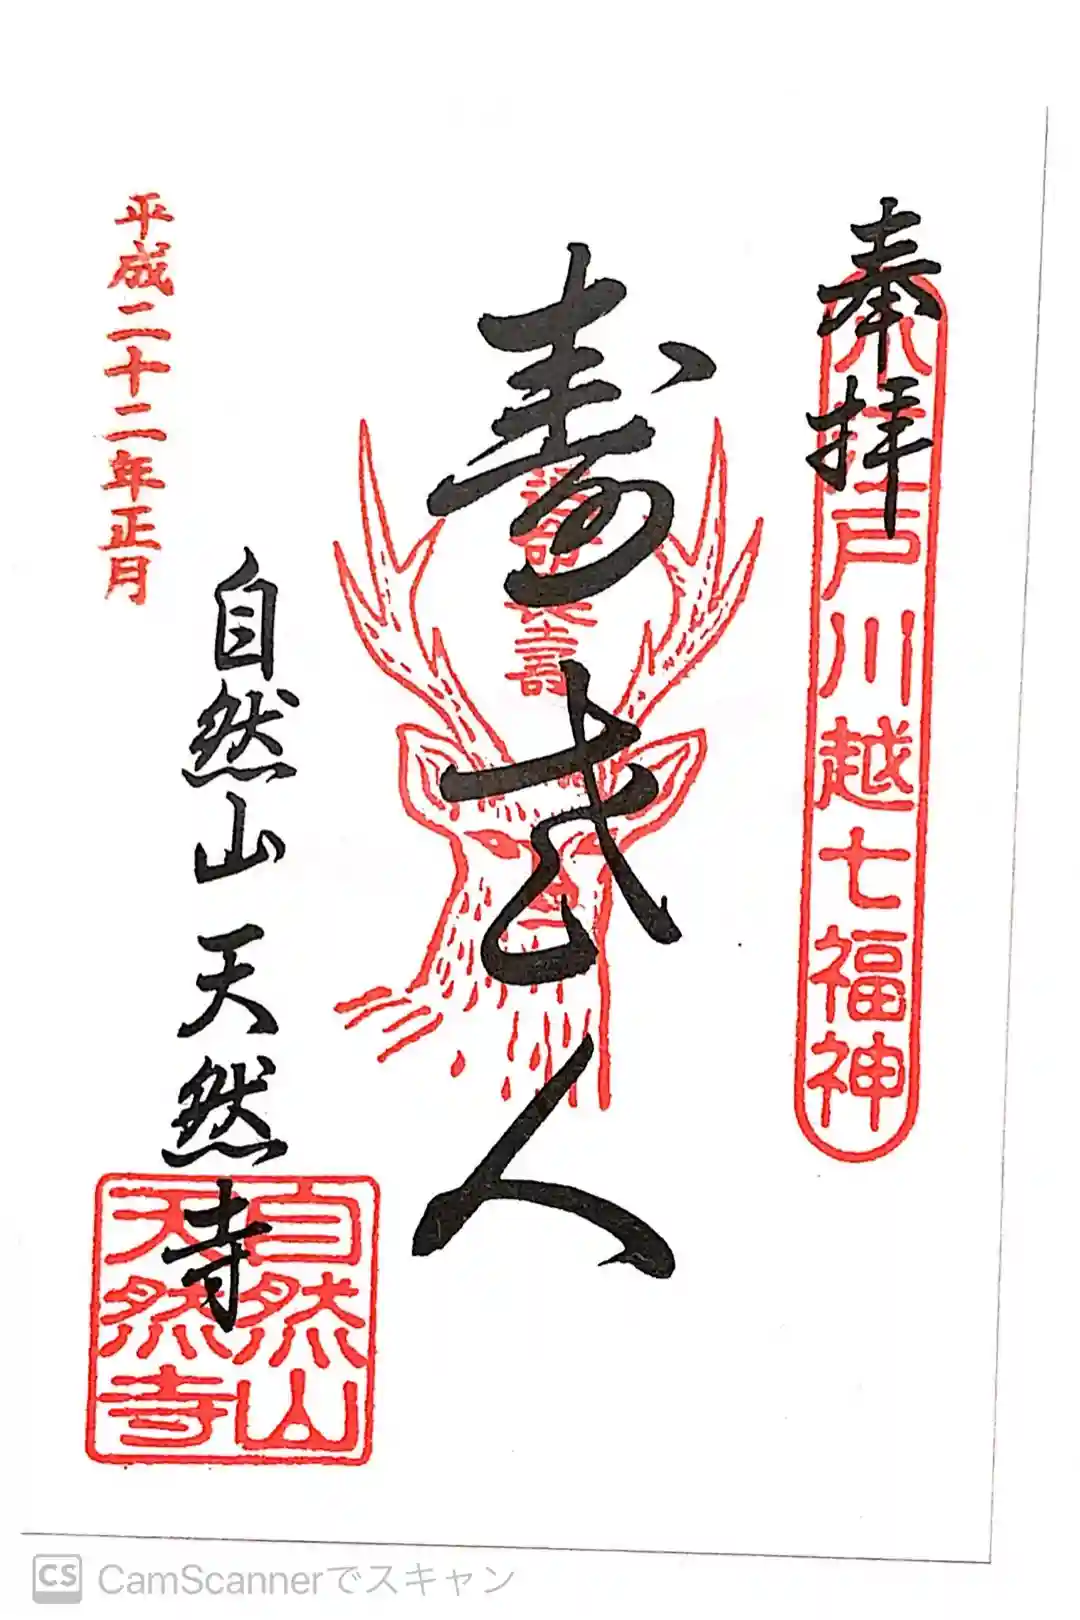 奉拝
小江戸川越七福神
寿老人
福禄長寿
自然山 天然寺
平成二十二年正月
自然山
天然寺
CS CamScannerでスキャン